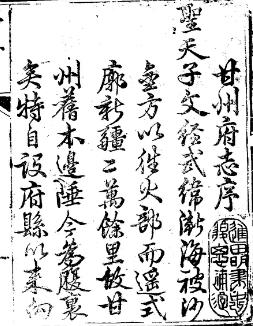 甘州府志序
聖天子文經武緯漸海被沙
方以火部而遥式
廓新疆二萬餘里故甘
州舊本邊陲今為腹裏
矣特自設府縣以來向